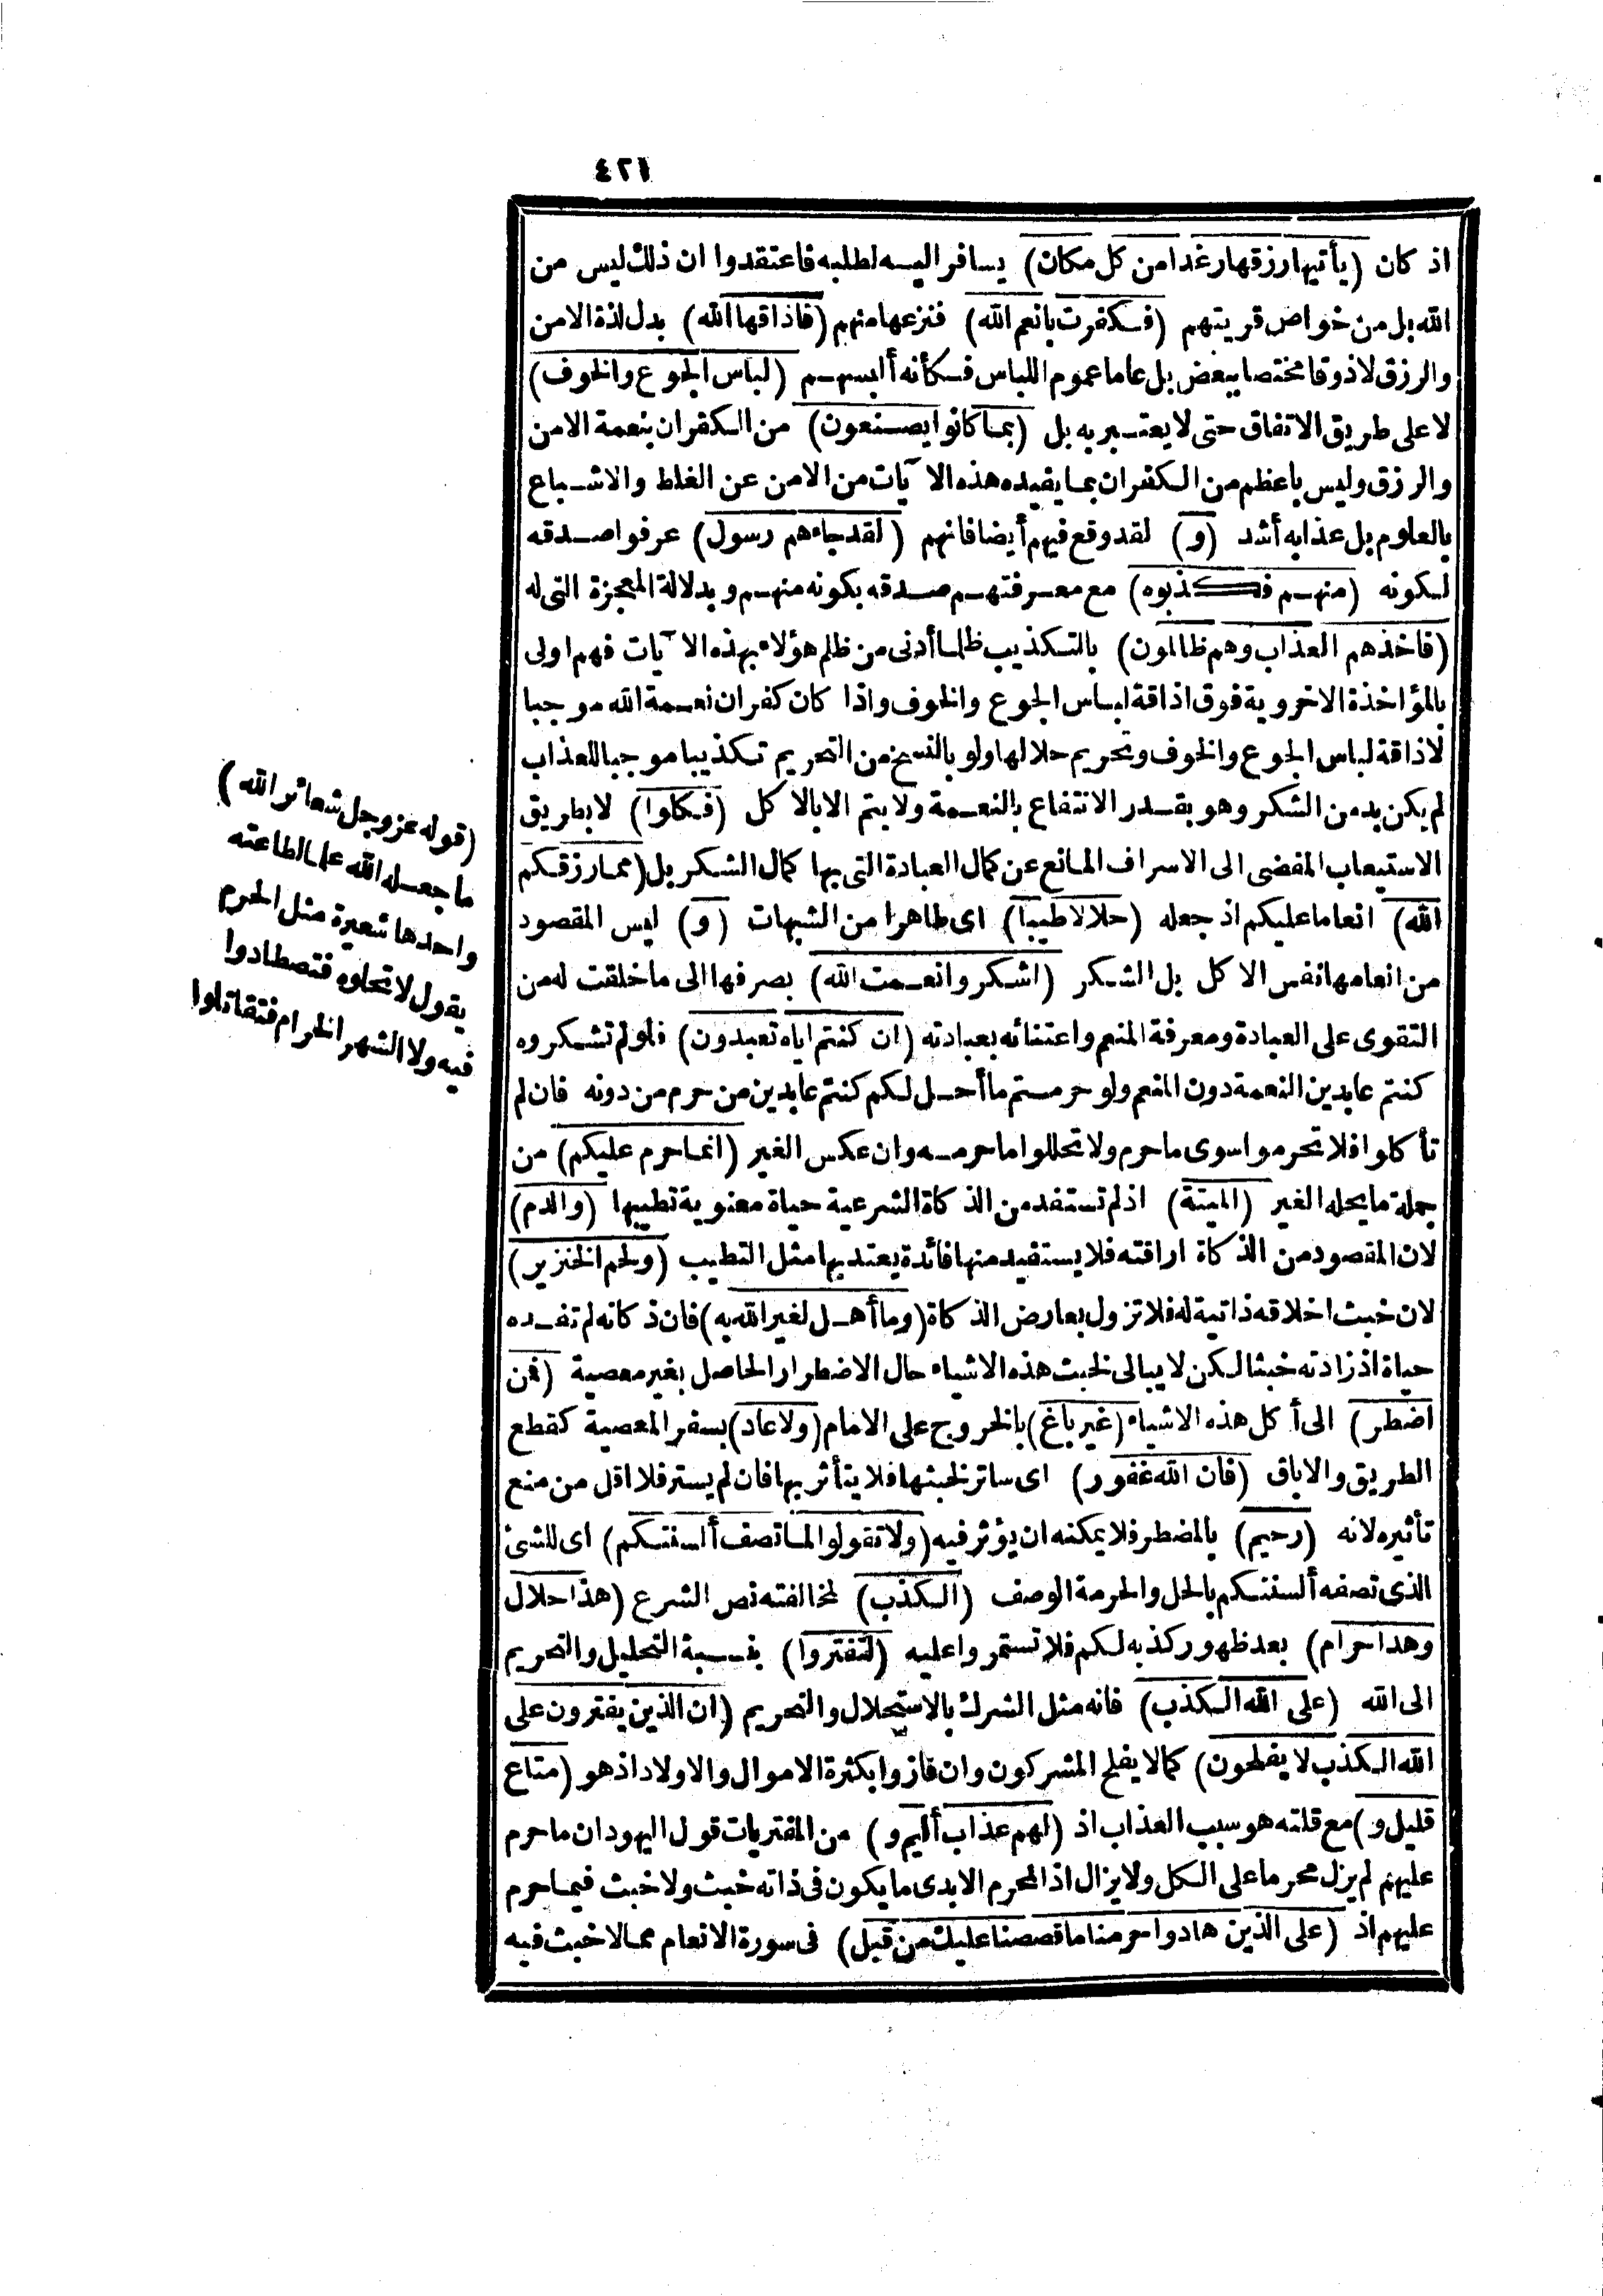 ٤٢١
اذ كان (يأتيها رزقها رغدا من كل مكان) يسافر اليه لطلبه فاعتقدوا ان ذلك ليس من
الله بل من خواص قريتهم (فكفرت بانعم الله) فنزعها منهم (فاذاقها الله) بدل لذة الامن
والرزق لاذوقا مختصا ببعض بل عاما عموم اللباس فكأنه ألبسهم (لباس الجوع والخوف)
لا على طريق الاتفاق حتى لا يعتبر به بل (بما كانوا يصنعون) من الكفران بنعمة الامن
والرزق وليس باعظم من الكفران بما يفيده هذه الآيات من الامن عن الغلط والاشباع
بالعلوم بل عذابه أشد (و) لقد وقع فيهم أيضا فانهم (لقد جاءهم رسول) عرفوا صدقه
لكونه (منهم فكذبوه) مع معرفتهم صدقه بكونه منهم وبدلالة المعجزة التى له
(فاخذهم العذاب وهم ظالمون) بالتكذيب ظلما أدنى من ظلم هؤلاء بهذه الآيات فهم اولى
بالمؤاخذة الاخروية فوق اذاقة لباس الجوع والخوف واذا كان كفران نعمة الله موجبا
لاذاقة لباس الجوع والخوف وتحريم حلالها ولو بالنسخ من التحريم تكذيبا موجبا للعذاب
لم يكن بد من الشكر وهو بقدر الانتفاع بالنعمة ولا يتم الا بالاكل (فكلوا) لا بطريق
الاستيعاب المفضى الى الاسراف المانع عن كمال العبادة التى بها كمال الشكر بل (مما رزقكم
الله) انعاما عليكم اذ جعله (حلالا طيبا) اى طاهرا من الشبهات (و) ليس المقصود
من انعامها نفس الاكل بل الشكر (اشكروا نعمت الله) بصرفها الى ما خلقت له من
التقوى على العبادة ومعرفة المنعم واعتنائه بعبادته (ان كنتم اياه تعبدون) فلو لم تشكروه
كنتم عابدين النعمة دون المنعم ولو حرمتم ما أحل لكم كنتم عابدين من حرم من دونه فان لم
تأكلوا فلا تحرموا سوى ما حرم ولا تحللوا ما حرمه وان عكس الغير (انما حرم عليكم) من
جملة ما يحله الغير (الميتة) اذ لم تستفد من الذكاة الشرعية حياة معنوية تطيبها (والدم)
لان المقصود من الذكاة اراقته فلا يستفيد منها فائدة يعتد بها مثل التطيب (ولحم الخنزير)
لان خبث اخلاقه ذاتية له فلا تزول بعارض الذكاة (وما أهل لغير الله به) فان ذكاته لم تفده
حياة اذ زادته خبثا لكن لا يبالى لخبث هذه الاشياء حال الاضطرار الحاصل بغير معصية (فمن
اضطر) الى أكل هذه الاشياء (غير باغ) بالخروج على الامام (ولا عاد) بسفر المعصية كقطع
الطريق والاباق (فان الله غفور) اى ساتر لخبثها فلا يتأثر بها فان لم يستر فلا اقل من منع
تأثيره لانه (رحيم) بالمضطر فلا يمكنه ان يؤثر فيه (ولا تقولوا لما تصف ألسنتكم) اى للشئ
الذى تصفه ألسنتكم بالحل والحرمة الوصف (الكذب) لمخالفته نص الشرع (هذا حلال
وهذا حرام) بعد ظهور كذبه لكم فلا تستمروا عليه (لتفتروا) بنسبة التحليل والتحريم
الى الله (على الله الكذب) فانه مثل الشرك بالاستحلال والتحريم (ان الذين يفترون على
الله الكذب لا يفلحون) كما لا يفلح المشركون وان فازوا بكثرة الاموال والاولاد اذ هو (متاع
قليل و) مع قلته هو سبب العذاب اذ (لهم عذاب أليم و) من المفتريات قول اليهود ان ما حرم
عليهم لم يزل محرما على الكل ولا يزال اذ المحرم الابدى ما يكون فى ذاته خبث ولا خبث فيما حرم
عليهم اذ (على الذين هادوا حرمنا ما قصصنا عليك من قبل) فى سورة الانعام مما لا خبث فيه
(قوله عز وجل شعائر الله)
ما جعله الله علما لطاعته
واحدها شعيرة مثل الحرم
يقول لا تحلوه فتصطادوا
فيه ولا الشهر الحرام فتقاتلوا